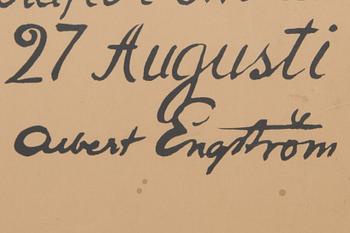 27 Augusti
Albert Engström